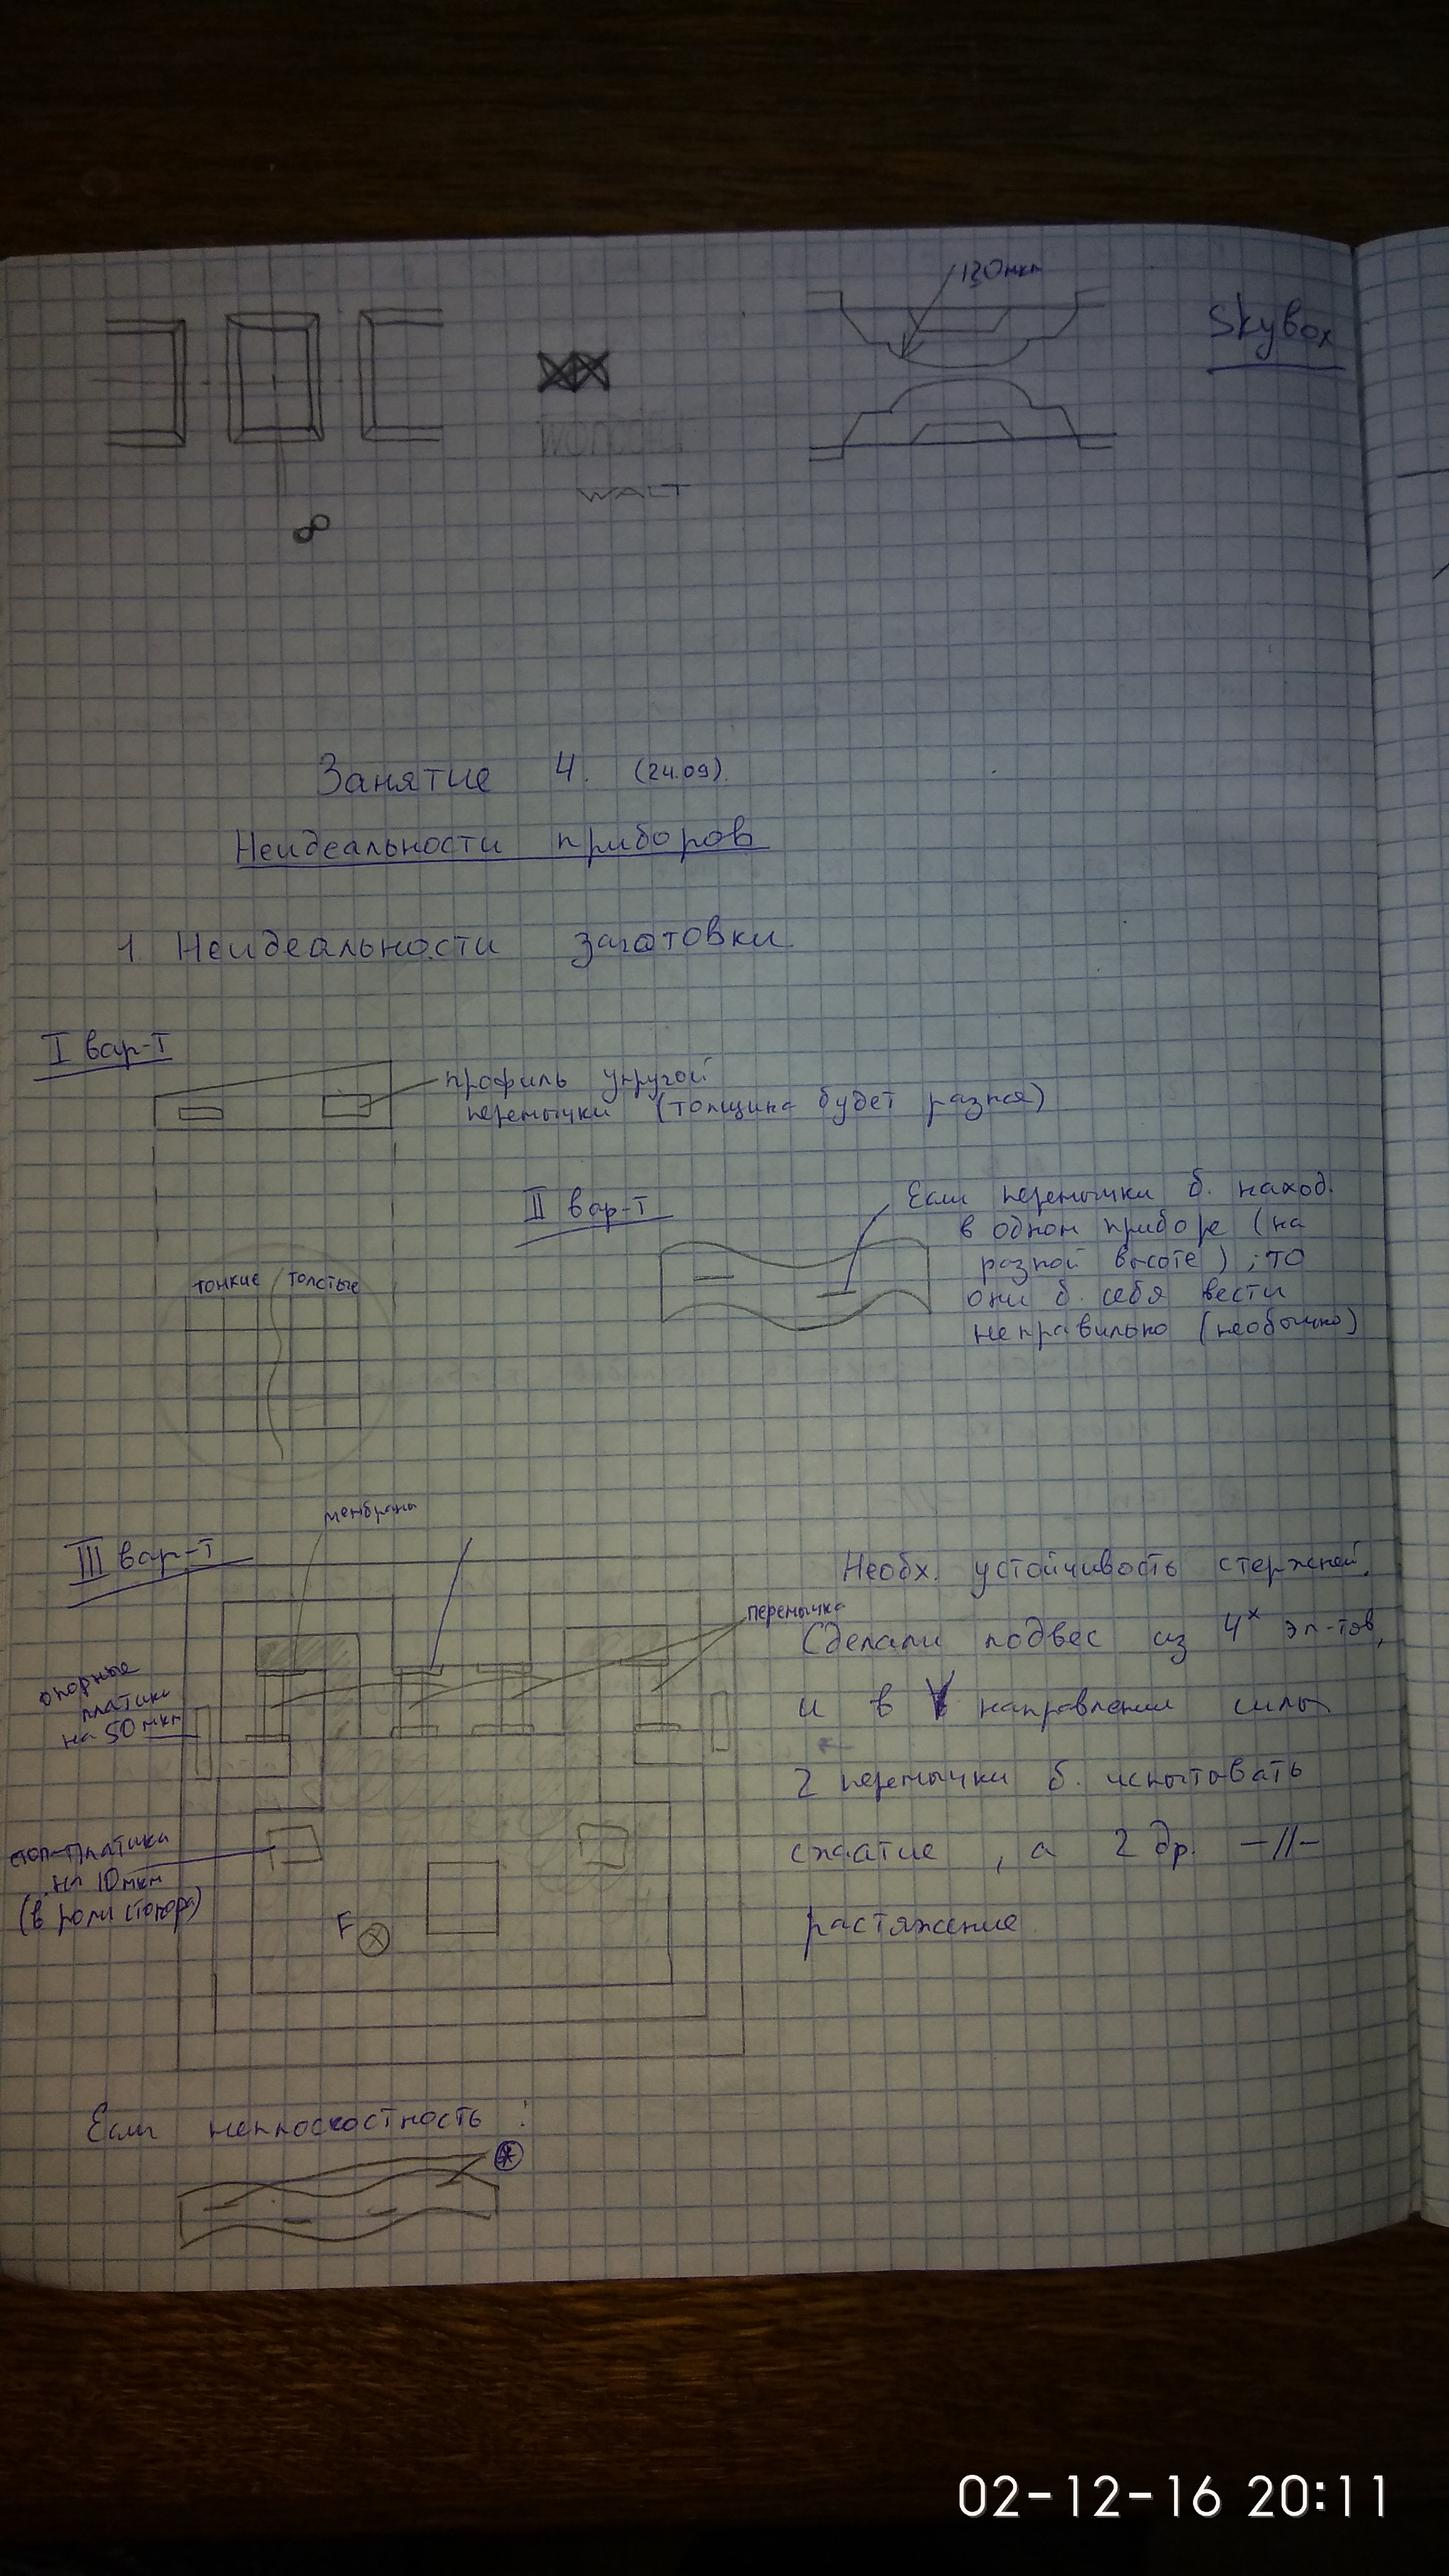 120мкм
Skybox
WONDER
WALT
Занятие 4. (24.09).
Неидеальности приборов
1. Неидеальности заготовки.
I вар-т
профиль упругой
перемычки (толщина будет разная)
II вар-т
Если перемычки б. наход.
в одном приборе (на
разной высоте), то
они б. себя вести
неправильно (необычно)
тонкие толстые
III вар-т
мембраны
перемычка
опорные
платики
на 50 мкм
стоп-платики
на 10 мкм
(в роли стопора)
F
Необх. устойчивость стержней.
Сделали подвес из 4х эл-тов,
и в направлении силы
2 перемычки б. испытовать
сжатие, а 2 др. -//-
растяжение.
Если неплоскостность:
02-12-16 20:11